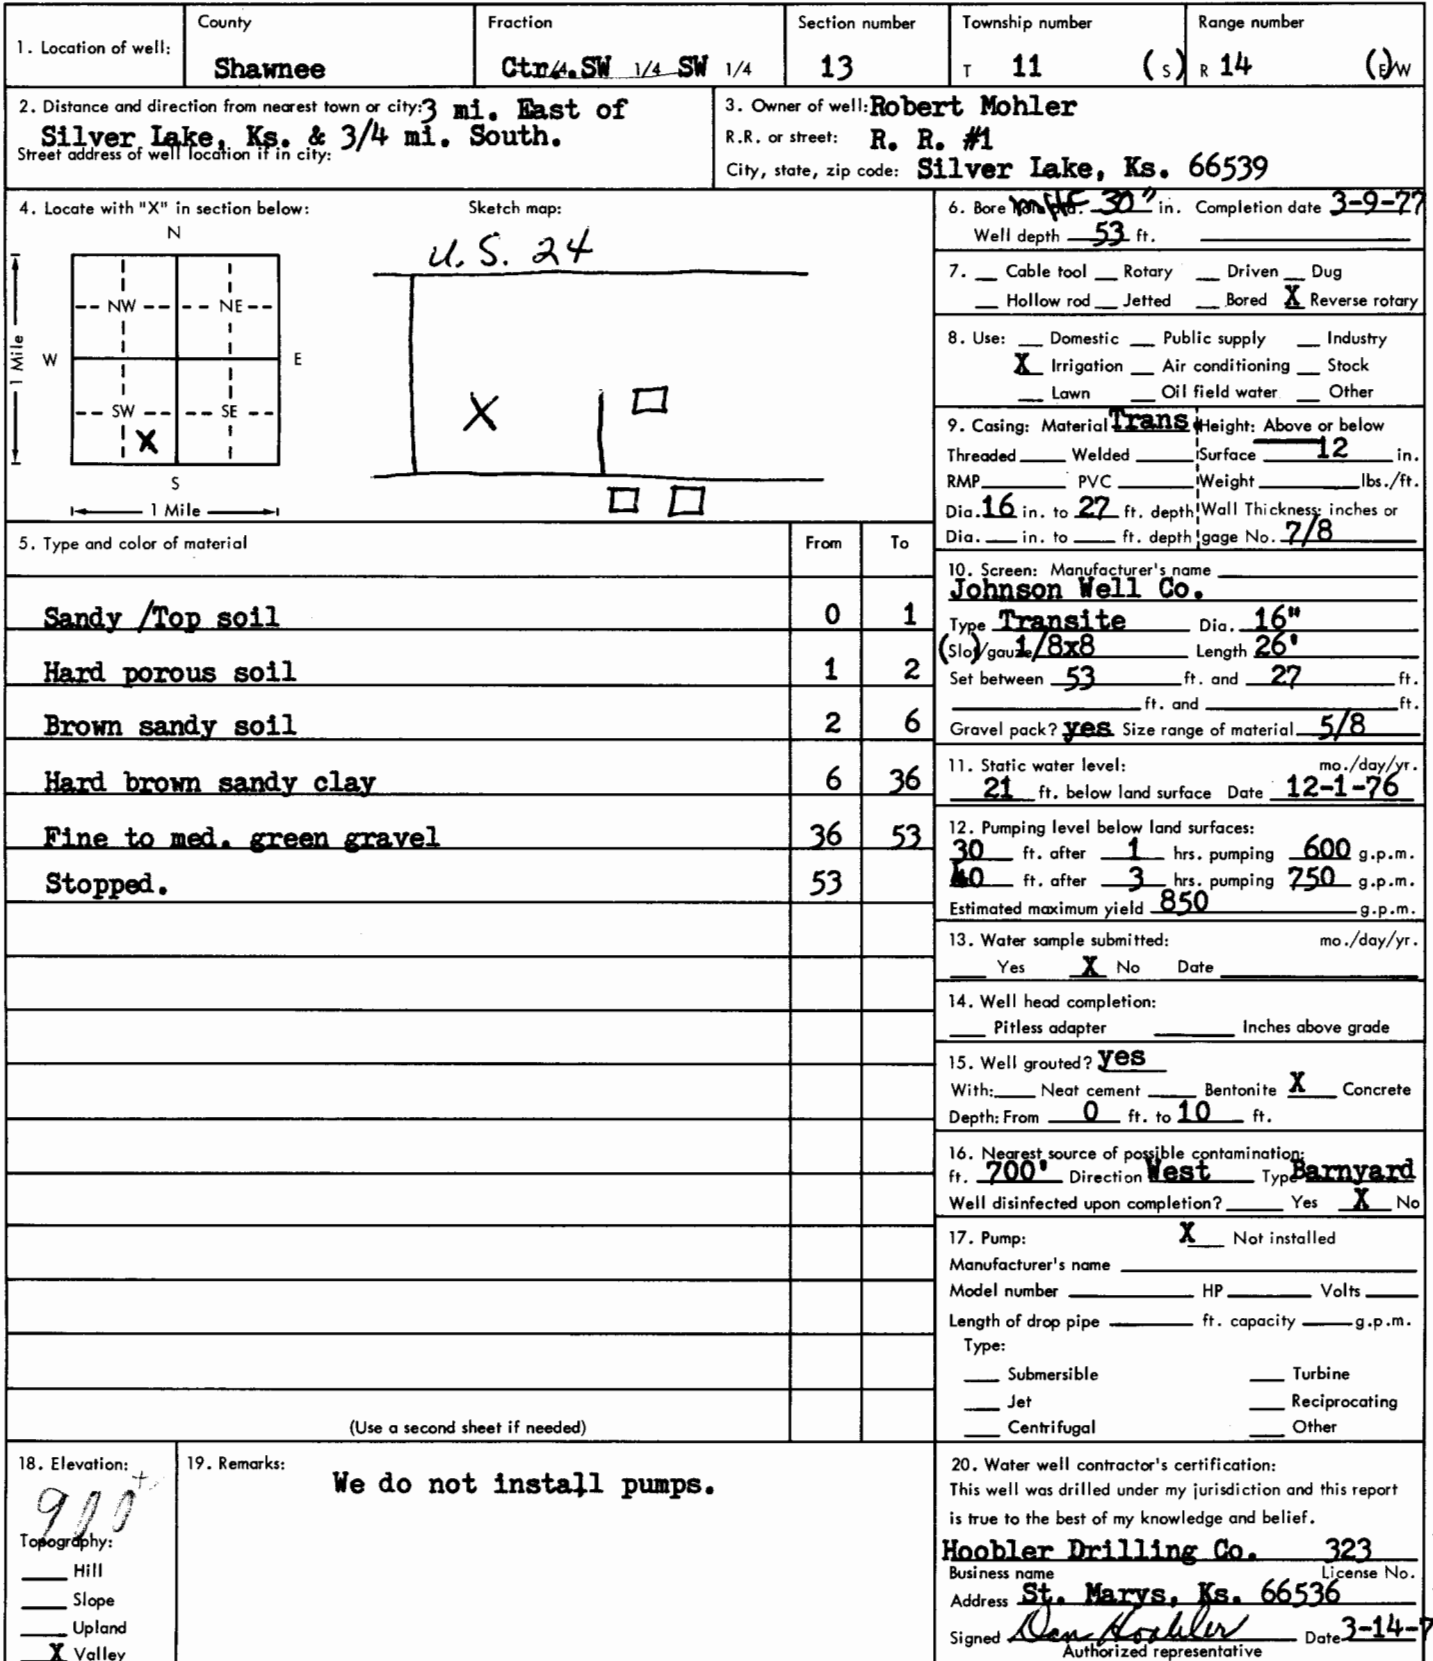 1. Location of well:
County
Shawnee
Fraction
Ctr. SW 1/4 SW 1/4
Section number
13
Township number
T 11 (S)
Range number
R 14 (E)/W
2. Distance and direction from nearest town or city: 3 mi. East of
Silver Lake, Ks. & 3/4 mi. South.
Street address of well location if in city:
3. Owner of well: Robert Mohler
R.R. or street: R. R. #1
City, state, zip code: Silver Lake, Ks. 66539
4. Locate with "X" in section below:
N
NW NE
W E
1 Mile
SW SE
X
S
1 Mile
Sketch map:
U.S. 24
X
5. Type and color of material From To
Sandy /Top soil 0 1
Hard porous soil 1 2
Brown sandy soil 2 6
Hard brown sandy clay 6 36
Fine to med. green gravel 36 53
Stopped. 53
(Use a second sheet if needed)
6. Bore 30" in. Completion date 3-9-77
Well depth 53 ft.
7. __ Cable tool __ Rotary __ Driven __ Dug
__ Hollow rod __ Jetted __ Bored X Reverse rotary
8. Use: __ Domestic __ Public supply __ Industry
X Irrigation __ Air conditioning __ Stock
__ Lawn __ Oil field water __ Other
9. Casing: Material Trans Height: Above or below
Threaded ____ Welded ____ Surface 12 in.
RMP ____ PVC ____ Weight ____ lbs./ft.
Dia. 16 in. to 27 ft. depth Wall Thickness: inches or
Dia. __ in. to __ ft. depth gage No. 7/8
10. Screen: Manufacturer's name
Johnson Well Co.
Type Transite Dia. 16"
(Slot)/gauze 1/8x8 Length 26'
Set between 53 ft. and 27 ft.
____ ft. and ____ ft.
Gravel pack? yes Size range of material 5/8
11. Static water level: mo./day/yr.
21 ft. below land surface Date 12-1-76
12. Pumping level below land surfaces:
30 ft. after 1 hrs. pumping 600 g.p.m.
40 ft. after 3 hrs. pumping 750 g.p.m.
Estimated maximum yield 850 g.p.m.
13. Water sample submitted: mo./day/yr.
__ Yes X No Date ____
14. Well head completion:
__ Pitless adapter ____ Inches above grade
15. Well grouted? yes
With: __ Neat cement __ Bentonite X Concrete
Depth: From 0 ft. to 10 ft.
16. Nearest source of possible contamination:
ft. 700' Direction West Type Barnyard
Well disinfected upon completion? ____ Yes X No
17. Pump: X Not installed
Manufacturer's name ____
Model number ____ HP ____ Volts ____
Length of drop pipe ____ ft. capacity ____ g.p.m.
Type:
__ Submersible __ Turbine
__ Jet __ Reciprocating
__ Centrifugal __ Other
18. Elevation:
900+
Topography:
__ Hill
__ Slope
__ Upland
X Valley
19. Remarks:
We do not install pumps.
20. Water well contractor's certification:
This well was drilled under my jurisdiction and this report
is true to the best of my knowledge and belief.
Hoobler Drilling Co. 323
Business name License No.
Address St. Marys, Ks. 66536
Signed Dan Hoobler Date 3-14-7
Authorized representative